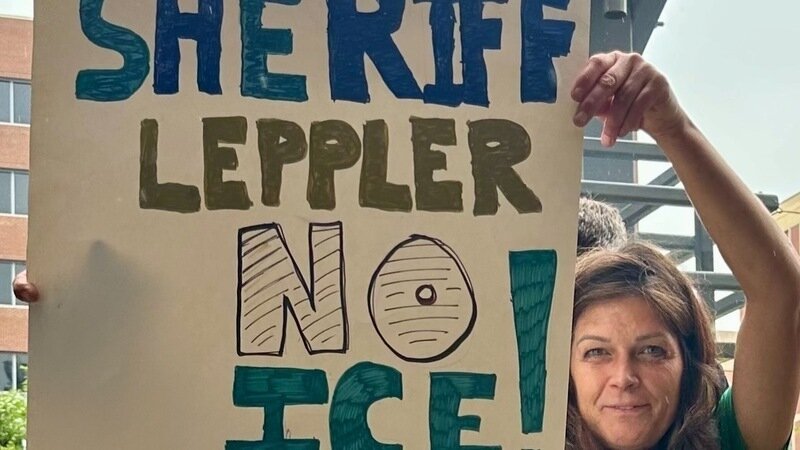 SHERIFF
LEPPLER
NO!
ICE